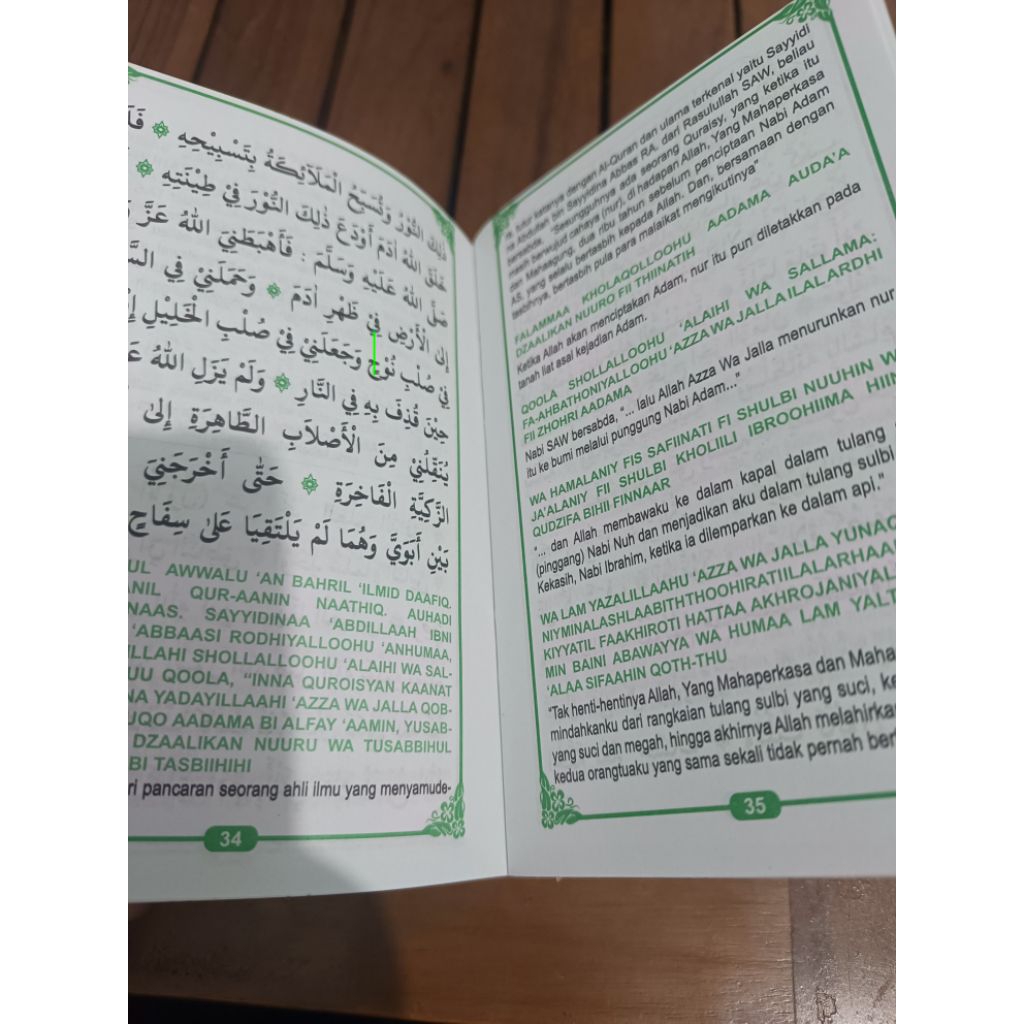 ذٰلِكَ النُّوْرُ وَتُسَبِّحُ الْمَلَآئِكَةُ بِتَسْبِيْحِهِ
خَلَقَ اللهُ اٰدَمَ أَوْدَعَ ذٰلِكَ النُّوْرَ فِيْ طِيْنَتِهِ
صَلَّى اللهُ عَلَيْهِ وَسَلَّمَ : فَأَهْبَطَنِيَ اللهُ عَزَّ
إِلَى الْأَرْضِ فِيْ ظَهْرِ اٰدَمَ وَحَمَلَنِيْ فِي
فِيْ صُلْبِ نُوْحٍ وَجَعَلَنِيْ فِيْ صُلْبِ الْخَلِيْلِ
حِيْنَ قُذِفَ بِهِ فِي النَّارِ وَلَمْ يَزَلِ اللهُ
يُنَقِّلُنِيْ مِنَ الْأَصْلَابِ الطَّاهِرَةِ إِلَى
الزَّكِيَّةِ الْفَاخِرَةِ حَتّٰى أَخْرَجَنِيَ
بَيْنِ أَبَوَيَّ وَهُمَا لَمْ يَلْتَقِيَا عَلٰى سِفَاحٍ
AWWALU 'AN BAHRIL 'ILMID DAAFIQ.
QUR-AANIN NAATHIQ. AUHADI
SAYYIDINAA 'ABDILLAAH IBNI
'ABBAASI RODHIYALLOOHU 'ANHUMAA,
SHOLLALLOOHU 'ALAIHI WA SAL-
QOOLA, "INNA QUROISYAN KAANAT
YADAYILLAAHI 'AZZA WA JALLA QOB-
AADAMA BI ALFAY 'AAMIN, YUSAB-
DZAALIKAN NUURU WA TUSABBIHUL
BI TASBIIHIHI
pancaran seorang ahli ilmu yang menyamude-
34
tutur katanya dengan Al-Quran dan ulama terkenal yaitu Sayyidi
na Abdullah bin Sayyidina Abbas RA, dari Rasulullah SAW, beliau
bersabda, "Sesungguhnya ada seorang Quraisy, yang ketika itu
masih berwujud cahaya (nur), di hadapan Allah, Yang Mahaperkasa
dan Mahaagung, dua ribu tahun sebelum penciptaan Nabi Adam
AS, yang selalu bertasbih kepada Allah. Dan, bersamaan dengan
tasbihnya, bertasbih pula para malaikat mengikutinya"
FALAMMAA KHOLAQOLLOOHU AADAMA AUDA'A
DZAALIKAN NUURO FII THIINATIH
Ketika Allah akan menciptakan Adam, nur itu pun diletakkan pada
tanah liat asal kejadian Adam.
QOOLA SHOLLALLOOHU 'ALAIHI WA SALLAMA:
FA-AHBATHONIYALLOOHU 'AZZA WA JALLA ILAL ARDHI
FII ZHOHRI AADAMA
Nabi SAW bersabda, "... lalu Allah Azza Wa Jalla menurunkan nur
itu ke bumi melalui punggung Nabi Adam..."
WA HAMALANIY FIS SAFIINATI FI SHULBI NUUHIN
JA'ALANIY FII SHULBI KHOLIILI IBROOHIIMA
QUDZIFA BIHII FINNAAR
"... dan Allah membawaku ke dalam kapal dalam tulang
(pinggang) Nabi Nuh dan menjadikan aku dalam tulang sulbi
Kekasih, Nabi Ibrahim, ketika ia dilemparkan ke dalam api."
WA LAM YAZALILLAAHU 'AZZA WA JALLA
NIYMINALASHLAABITHTHOOHIRATIILALARHAA
KIYYATIL FAAKHIROTI HATTAA AKHROJANIYAL
MIN BAINI ABAWAYYA WA HUMAA LAM
'ALAA SIFAAHIN QOTH-THU
"Tak henti-hentinya Allah, Yang Mahaperkasa dan
mindahkanku dari rangkaian tulang sulbi yang suci,
yang suci dan megah, hingga akhirnya Allah
kedua orangtuaku yang sama sekali tidak pernah
35